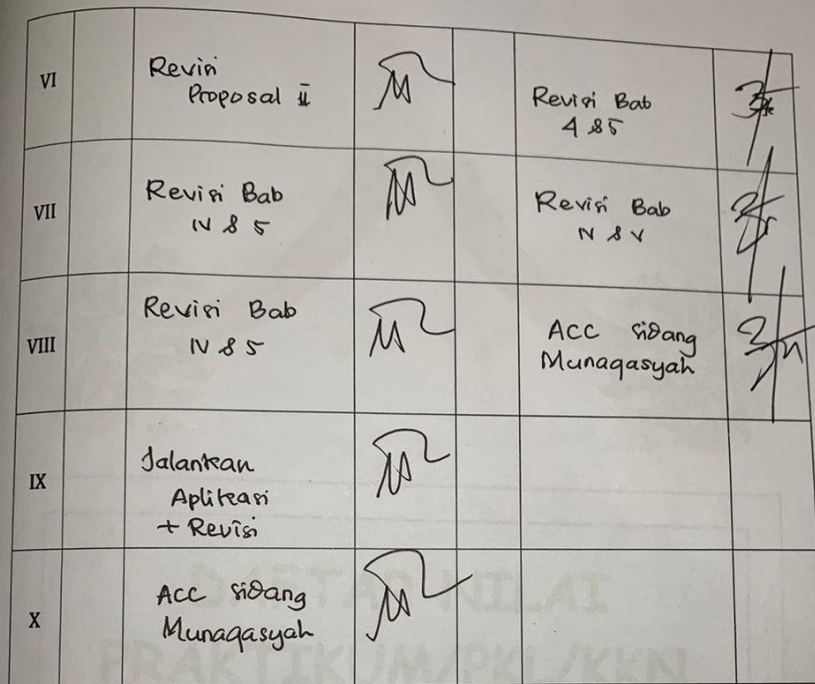 VI
Revisi
Proposal II
Revisi Bab
4 & 5
VII
Revisi Bab
IV & 5
Revisi Bab
IV & V
VIII
Revisi Bab
IV & 5
ACC sidang
Munaqasyah
IX
Jalankan
Aplikasi
+ Revisi
X
ACC sidang
Munaqasyah
DAFTAR NILAI
PRAKTIKUM/PKL/KKN